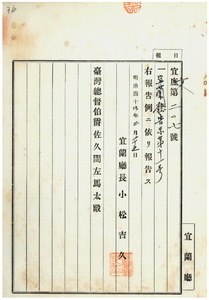 報
宜庶第二一〇七號
一宜蘭廳告示第十一號
右報告例ニ依リ報告ス
明治四十四年
宜蘭廳長小松吉久
臺灣總督伯爵佐久間左馬太殿
宜蘭廳